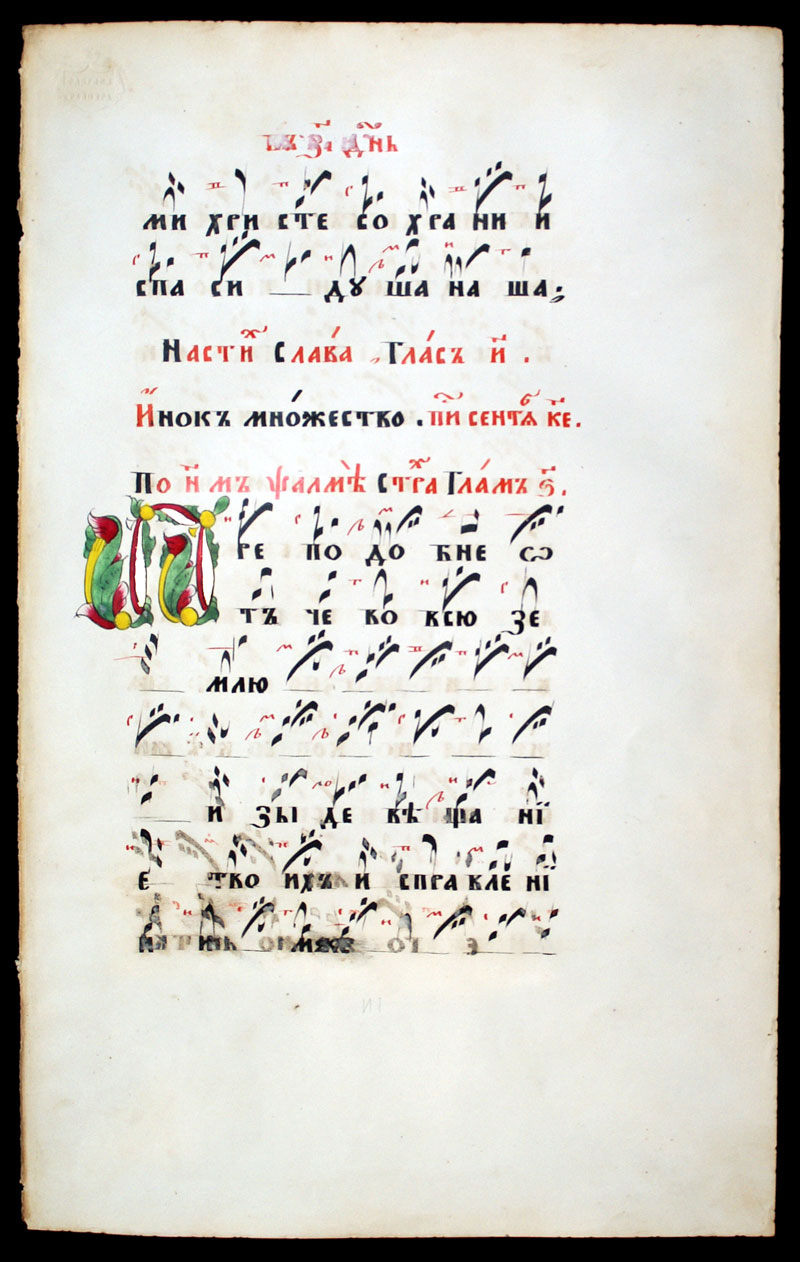 ми хри сте со хра ни и
спа си ду ша на ша;
На стиⷯ Слава Гласъ и҃ .
И҆нокъ мно́жество . пи сентѧ к҃е .
По н҃ мъ ѱалмѣ Стⷯра Гла́мъ ѕ҃ .
П ре по до бне ѿ
тъ че во всю зе
млю
и зы де вѣ ща нї
е тво ихъ и справле нї